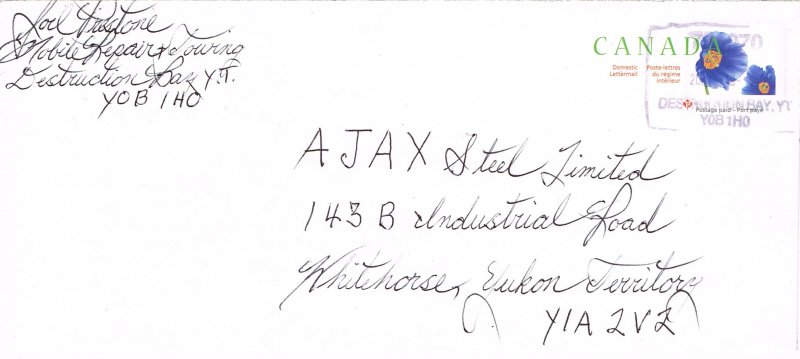 Joel
Mobile Repair & Towing
Destruction Bay Y.T.
Y0B 1H0
CANADA
Domestic
Lettermail
Poste-lettres
du régime
intérieur
Postage paid - Port payé
BAY, YT
Y0B 1H0
AJAX Steel Limited
143 B Industrial Road
Whitehorse, Yukon Territory
Y1A 2V2